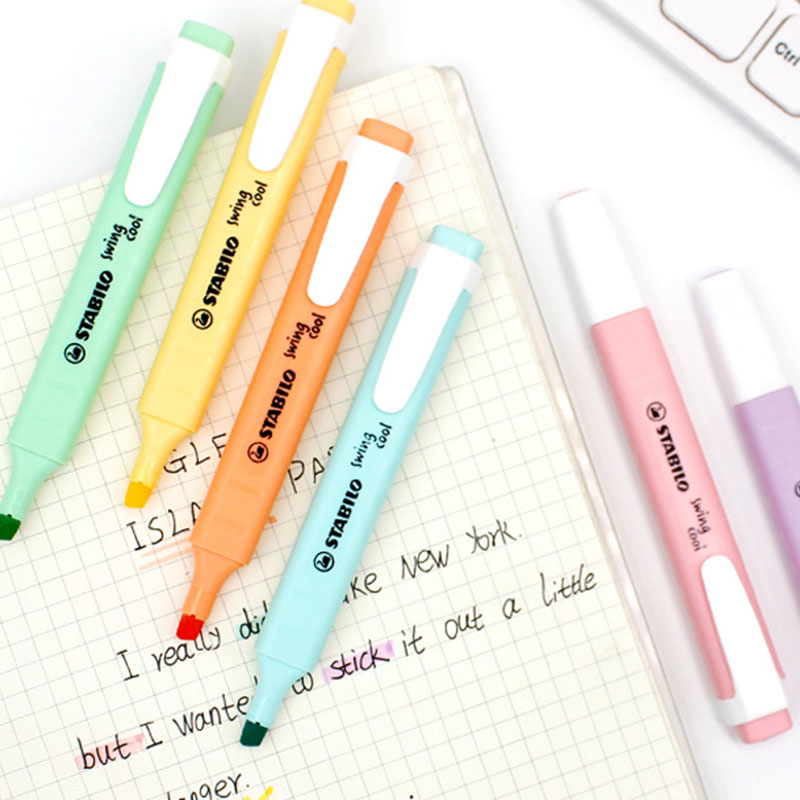 Ctrl
STABILO swing cool
STABILO swing cool
STABILO swing cool
STABILO swing cool
STABILO swing cool
GLE
PA
ISLA
I really did ke NEW York.
but I wante to stick it out a little
longer.